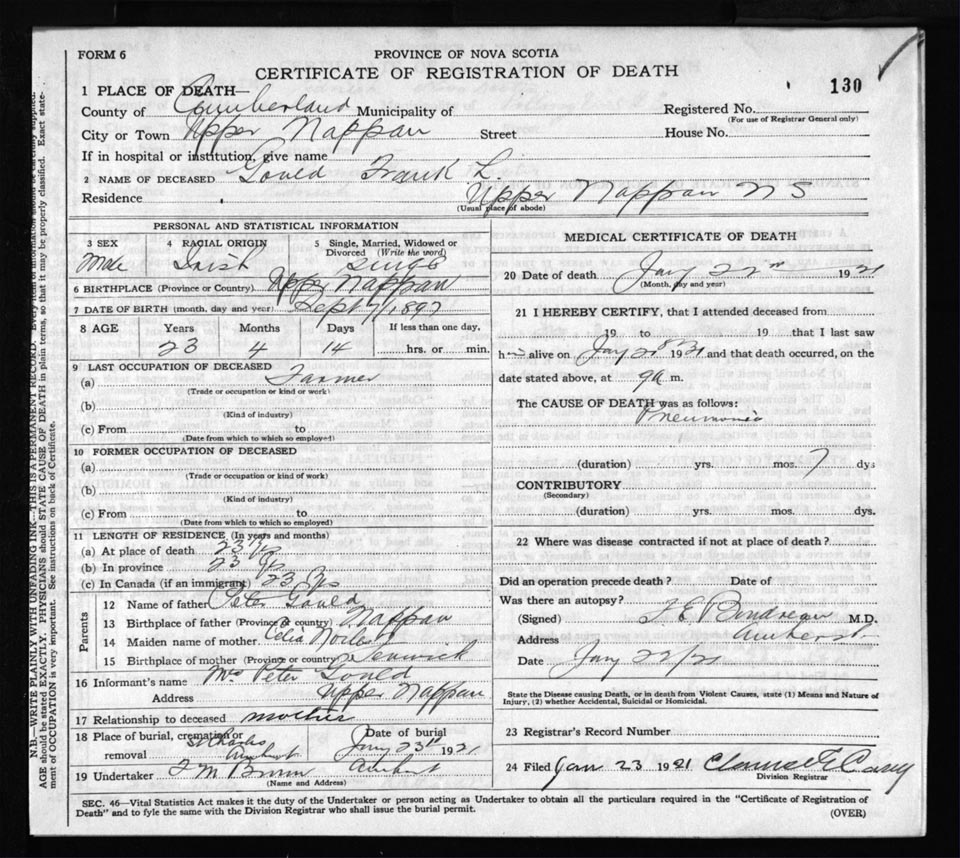 FORM 6
PROVINCE OF NOVA SCOTIA
CERTIFICATE OF REGISTRATION OF DEATH
130
1 PLACE OF DEATH—
County of Cumberland Municipality of Registered No.
(For use of Registrar General only)
City or Town Upper Nappan Street House No.
If in hospital or institution, give name
2 NAME OF DECEASED Gould Frank L.
Residence Upper Nappan N S
(Usual place of abode)
PERSONAL AND STATISTICAL INFORMATION
3 SEX 4 RACIAL ORIGIN 5 Single, Married, Widowed or
Divorced (Write the word)
Male Irish Single
6 BIRTHPLACE (Province or Country) Upper Nappan
7 DATE OF BIRTH (month, day and year) Sept 7/1897
8 AGE Years Months Days If less than one day,
23 4 14 hrs. or min.
9 LAST OCCUPATION OF DECEASED
(a) Farmer
(Trade or occupation or kind or work)
(b)
(Kind of industry)
(c) From to
(Date from which to which so employed)
10 FORMER OCCUPATION OF DECEASED
(a)
(Trade or occupation or kind of work)
(b)
(Kind of industry)
(c) From to
(Date from which to which so employed)
11 LENGTH OF RESIDENCE (In years and months)
(a) At place of death 23 Yrs
(b) In province 23 Yrs
(c) In Canada (if an immigrant) 23 Yrs
Parents
12 Name of father Peter Gould
13 Birthplace of father (Province or country) Nappan
14 Maiden name of mother Celia
15 Birthplace of mother (Province or country) Fenwick
16 Informant's name Mrs Peter Gould
Address Upper Nappan
17 Relationship to deceased mother
18 Place of burial, cremation or removal St Charles Amherst Date of burial Jany 23rd 1921
19 Undertaker Amherst
(Name and Address)
MEDICAL CERTIFICATE OF DEATH
20 Date of death Jany 22nd 1921
(Month, day and year)
21 I HEREBY CERTIFY, that I attended deceased from
19 to 19 that I last saw
him alive on Jany 1921 and that death occurred, on the
date stated above, at 9 a m.
The CAUSE OF DEATH was as follows:
Pneumonia
(duration) yrs. mos. 7 dys
CONTRIBUTORY
(Secondary)
(duration) yrs. mos. dys.
22 Where was disease contracted if not at place of death?
Did an operation precede death? Date of
Was there an autopsy?
(Signed) M.D.
Address Amherst
Date Jany 22/21
State the Disease causing Death, or in death from Violent Causes, state (1) Means and Nature of
Injury, (2) whether Accidental, Suicidal or Homicidal.
23 Registrar's Record Number
24 Filed Jan 23 1921
Division Registrar
SEC. 46—Vital Statistics Act makes it the duty of the Undertaker or person acting as Undertaker to obtain all the particulars required in the "Certificate of Registration of
Death" and to fyle the same with the Division Registrar who shall issue the burial permit.
(OVER)
N.B.—WRITE PLAINLY WITH UNFADING INK—THIS IS A PERMANENT RECORD. Every item of information should be carefully supplied.
AGE should be stated EXACTLY. PHYSICIANS should STATE CAUSE OF DEATH in plain terms, so that it may be properly classified. Exact state-
ment of OCCUPATION is very important. See instructions on back of Certificate.